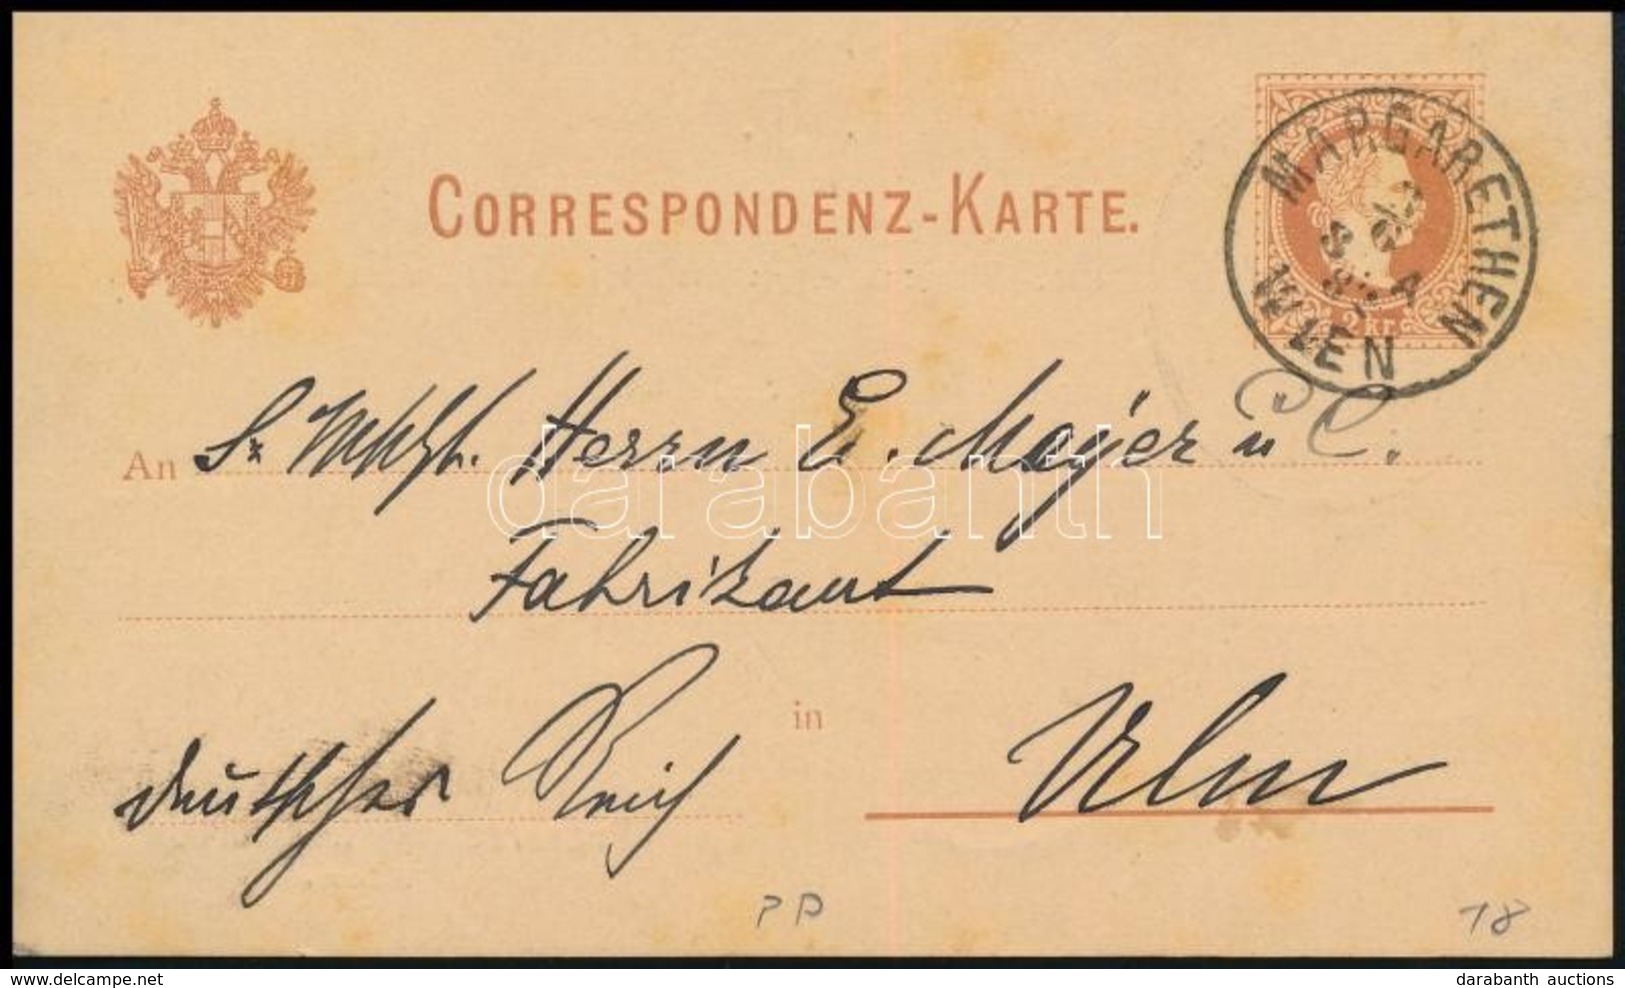 CORRESPONDENZ-KARTE.
MARGARETHEN
WIEN
2 kr.
An Sr. Herrn E. Mayer u C.
darabanth
Fabrikant
deutsches Reich in Ulm
PP
18
delcampe.net
darabanth auctions